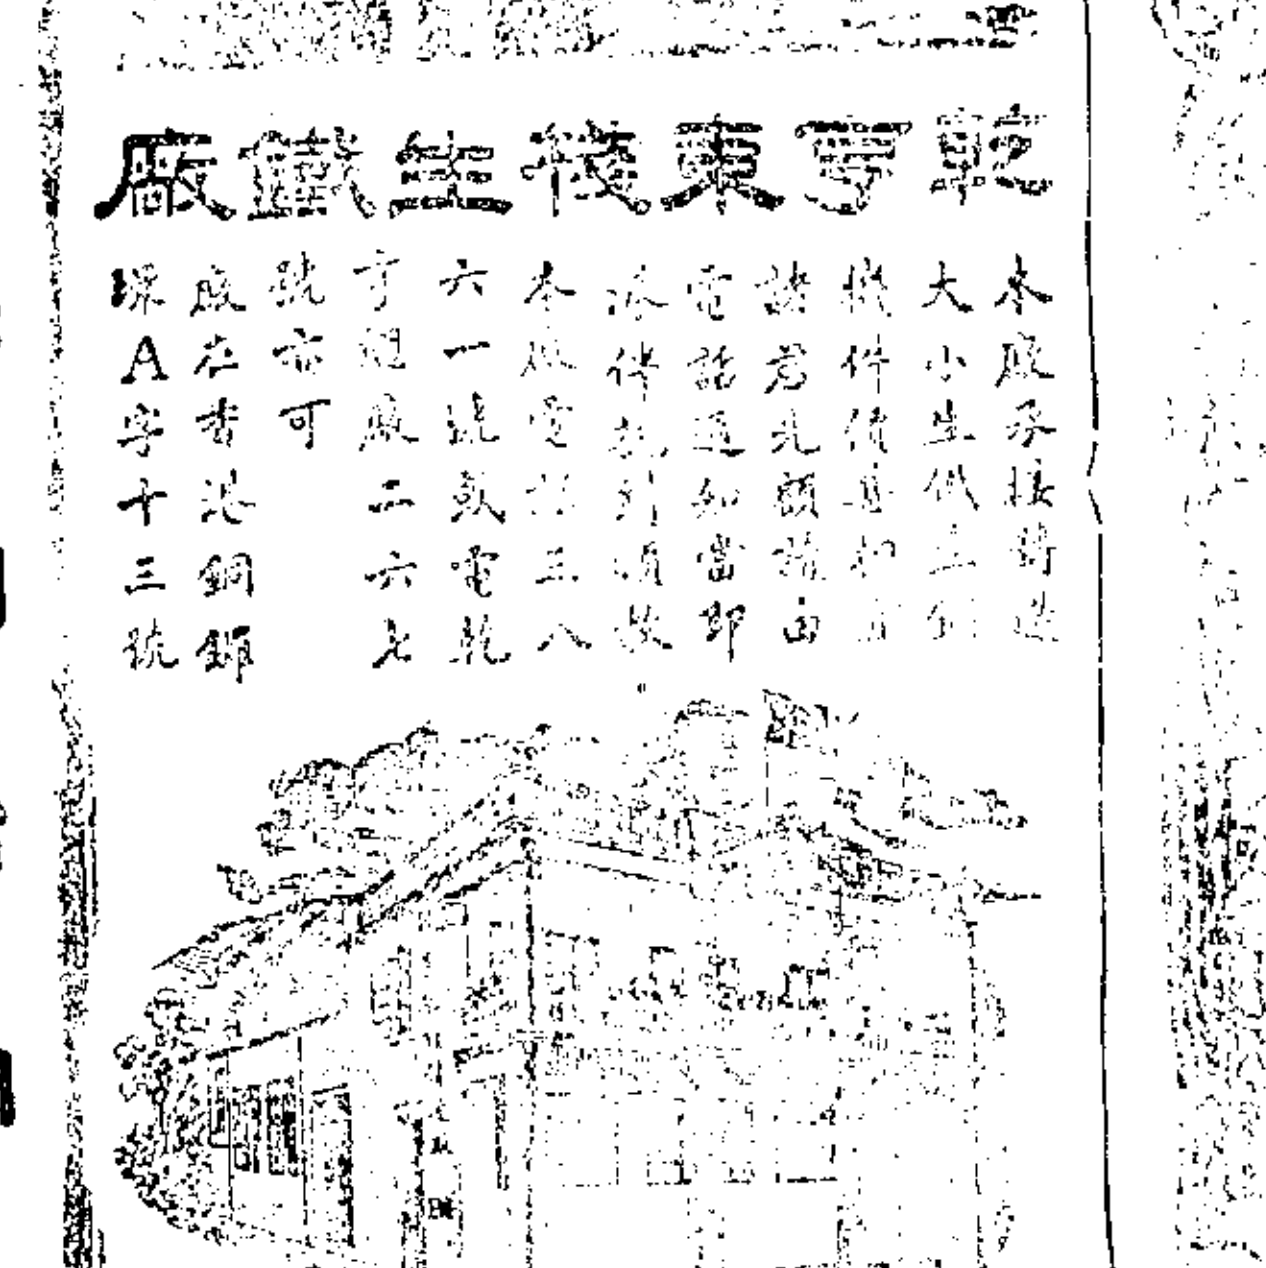 乾亨東棧生鐵廠
本廠承接鑄造
大小生鐵
機件價
諸君光顧請由
電話通知當即
派伴到領教
本廠電話三八
六一號或電乾
亨 廠二六七
號亦可
廠在香港銅鑼
環A字十三號